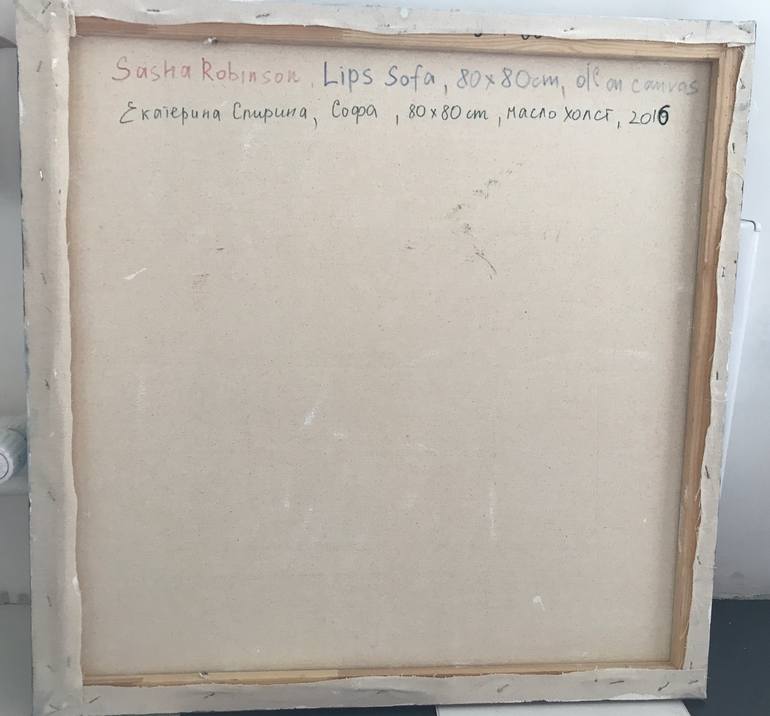 Sasha Robinson, Lips Sofa, 80x80cm, oil on canvas
Екатерина Спирина, Софа, 80x80 cm, масло холст, 2016